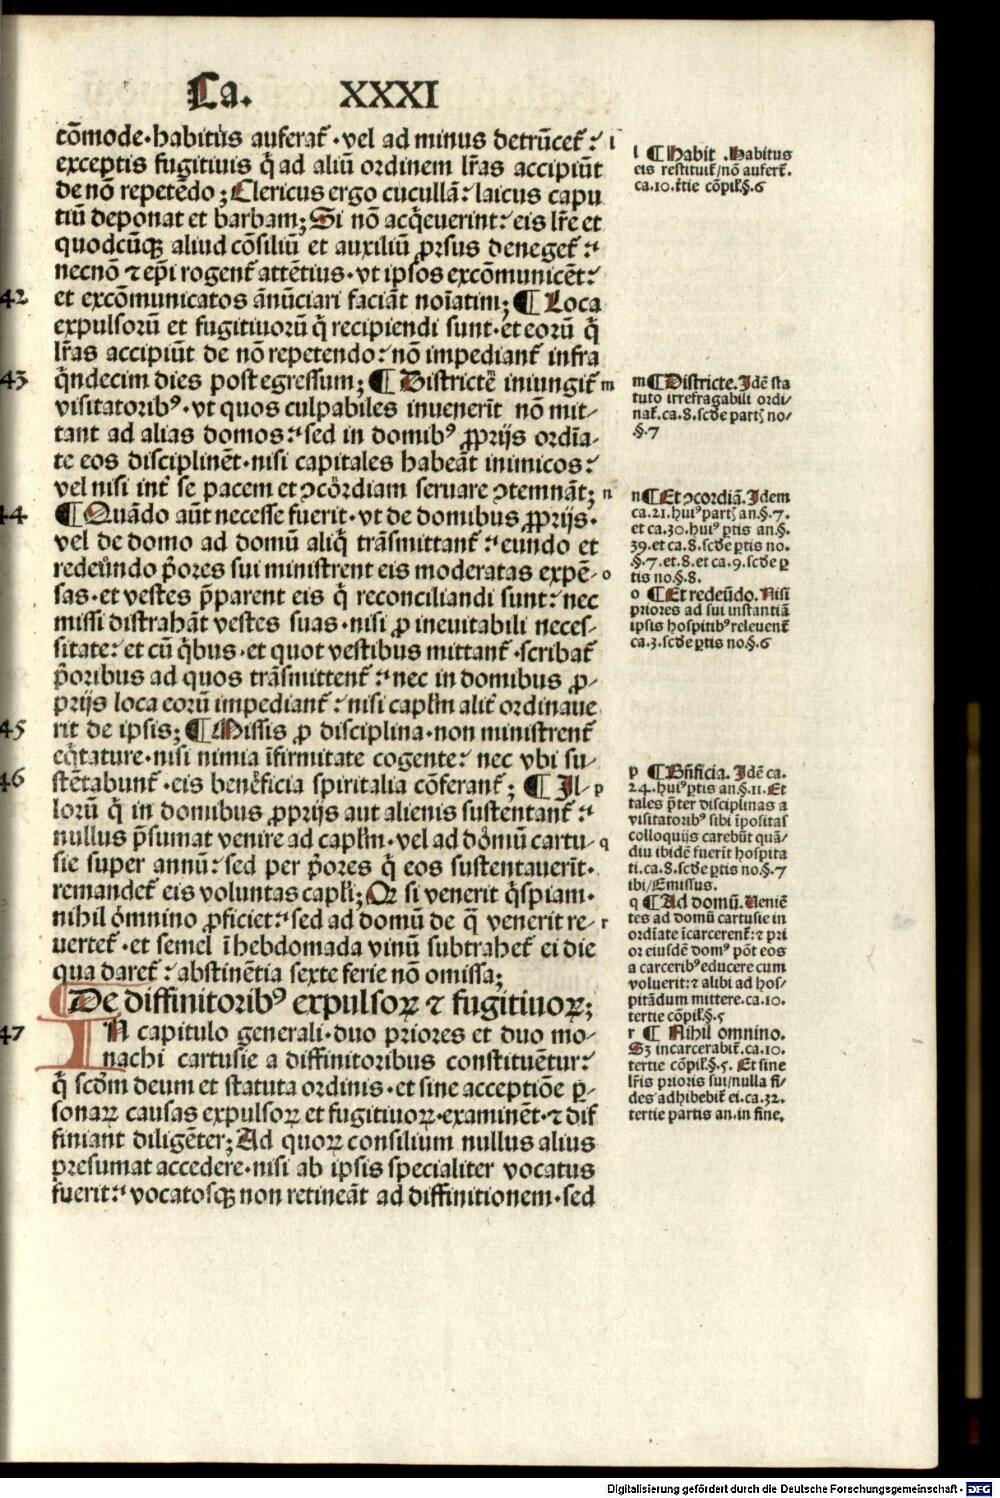 Ca. XXXI
cōmode·habitus auferat̄·vel ad minus detrūcet̄: l
exceptis fugitiuis q̄ ad aliū ordinem lr̄as accipiūt
de nō repetēdo; Clericus ergo cucullā: laicus capu
tiū deponat et barbam; Si nō acq̄euerint: eis lr̄e et
quodcūq̨ aliud cōsiliū et auxiliū ꝓrsus deneget̄:
necnō ⁊ ep̄i rogent̄ attētius·vt ipsos excōmunicēt:
42 et excōmunicatos ānūciari faciāt noīatim; ¶ Loca
expulsorū et fugitiuorū q̄ recipiendi sunt·et eorū q̄
lr̄as accipiūt de nō repetendo: nō impediant̄ infra
43 q̄ndecim dies post egressum; ¶ Districtē iniungit̄ m
visitatorib⁹·vt quos culpabiles inuenerīt nō mit⸗
tant ad alias domos: sed in domib⁹ ꝓprijs ordīa⸗
te eos disciplinēt·nisi capitales habeāt inimicos:
vel nisi int̄ se pacem et ꝯcōrdiam seruare ꝯtemnāt; n
44 ¶ Quādo aūt necesse fuerit·vt de domibus ꝓprijs·
vel de domo ad domū aliq̄ trāsmittant̄: eundo et
redeūndo p̄ores sui ministrent eis moderatas expē⸗ o
sas·et vestes p̄parent eis q̄ reconciliandi sunt: nec
missi distrahāt vestes suas·nisi ꝓ ineuitabili neces⸗
sitate: et cū q̄bus·et quot vestibus mittant̄·scribat̄
p̄oribus ad quos trāsmittent̄: nec in domibus ꝓ⸗
prijs loca eorū impediant̄: nisi capl̄m alit̄ ordinaue
45 rit de ipsis; ¶ Missis ꝓ disciplina·non ministrent̄
eq̄tature·nisi nimia īfirmitate cogente: nec vbi su⸗
46 stētabunt̄·eis benēficia spiritalia cōferant̄; ¶ Il⸗ p
lorū q̄ in domibus ꝓprijs aut alienis sustentant̄:
nullus p̄sumat venire ad capl̄m·vel ad dōmū cartu⸗ q
sie super annū: sed per p̄ores q̄ eos sustentauerīt·
remandet̄ eis voluntas capl̄i; Qꝛ si venerit q̄spiam·
nihil ōmnino ꝓficiet: sed ad domū de q̄ venerit re⸗ r
uertet̄·et semel ī hebdomada vinū subtrahet̄ ei die
qua daret̄: abstinētia sexte ferie nō omissa;
¶ De diffinitorib⁹ expulsoꝝ ⁊ fugitiuoꝝ;
47 IN capitulo generali·duo priores et duo mo⸗
nachi cartusie a diffinitoribus constituētur:
q̄ scd̄m deum et statuta ordinis·et sine acceptiōe ꝑ⸗
sonaꝝ causas expulsoꝝ et fugitiuoꝝ·examinēt·⁊ dif
finiant diligēter; Ad quoꝝ consilium nullus alius
presumat accedere·nisi ab ipsis specialiter vocatus
fuerit: vocatosq̨ non retineāt ad diffinitionem·sed
l ¶ Habit. Habitus
eis restituit̄/nō aufert̄.
ca.10.t̄tie cōpil̄.§.6
m ¶ Districte. Idē sta
tuto irrefragabili ordi⸗
nat̄.ca.8.scd̄e part̄ꝭ no⸗
.§.7
n ¶ Et ꝯcordiā. Idem
ca.21.hui⁹ part̄ꝭ an.§.7.
et ca.30.hui⁹ ꝑtis an.§.
39.et ca.8.scd̄e ꝑtis no.
§.7.et.8.et ca.9.scd̄e ꝑ
tis no.§.8.
o ¶ Et redeūdo. Nisi
priores ad sui instantiā
ipsis hospitib⁹ releuent̄
ca.3.scd̄e ꝑtis no.§.6
p ¶ Bn̄ficia. Idē ca.
24.hui⁹ ꝑtis an.§.11. Et
tales p̄ter disciplinas a
visitatorib⁹ sibi īpositas
colloquijs carebūt quā⸗
diu ibidē fuerīt hospita
ti.ca.8.scd̄e ꝑtis no.§.7
ibi/Emissus.
q ¶ Ad domū. Veniē
tes ad domū cartusie in
ordīate īcarcerent̄: ⁊ pri
or eiusdē dom⁹ pōt eos
a carcerib⁹ educere cum
voluerit: ⁊ alibi ad hos⸗
pitādum mittere.ca.10.
tertie cōpil̄.§.5
r ¶ Nihil omnino.
Sꝫ incarcerabit̄.ca.10.
tertie cōpil̄.§.5. Et sine
lr̄is prioris sui/nulla fi⸗
des adhibebit̄ ei.ca.32.
tertie partis an.in fine.
Digitalisierung gefördert durch die Deutsche Forschungsgemeinschaft - DFG